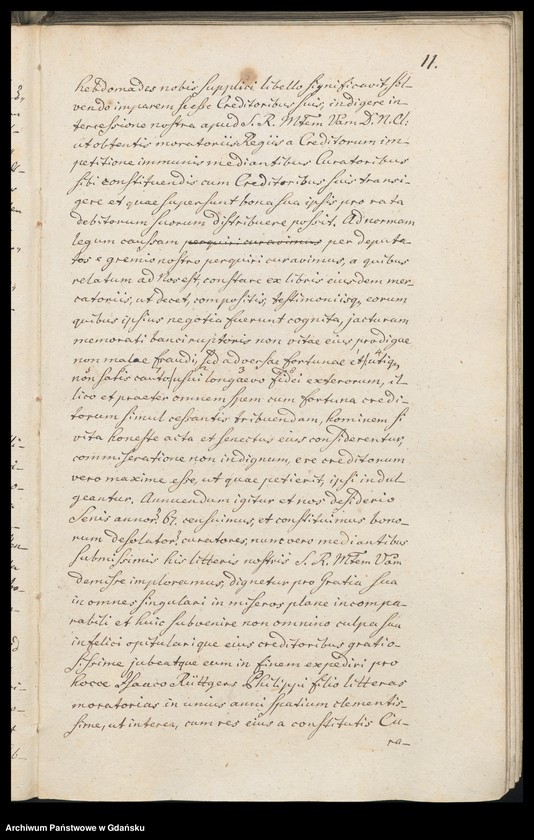 11.
hebdomades nobis supplici libello significavit, sol-
vendo imparem se esse Creditoribus suis, indigere in-
tercessione nostra apud S. R. Mtem Vam D. N. Cl:
ut obtentis moratoriis Regiis a Creditorum im-
petitione immunis mediantibus Curatoribus
sibi constituendis cum Creditoribus suis transi-
gere et quae supersunt bona sua ipsis pro rata
debitorum suorum distribuere possit. Ad normam
legum causam perquiri curavimus per deputa-
tos e gremio nostro perquiri curavimus, a quibus
relatum ad Nos est, constare ex libris eiusdem mer-
catoriis, ut decet, compositis, testimoniisq, eorum
quibus ipsius negotia fuerunt cognita, jacturam
memorati bancirupto­ris non vitae eius prodigae
non malae fraudi, sed adversae fortunae et utiq,
non satis cauto usui longaevo fidei exterorum, il-
lico et praeter omnem spem cum fortuna credi-
torum simul cessantis tribuendam, hominem si
vita honeste acta et senectus eius considerentur,
commiseratione non indignum, e re creditorum
vero maxime esse, ut quae petierit, ipsi indul
geantur. Annuendum igitur et nos desiderio
Senis annor. 67. censuimus, et constituimus bono-
rum desolator. curatores, nunc vero mediantibus
submissimis his litteris nostris S. R. Mtem Vam
demisse imploramus, dignetur pro Gratia sua
in omnes singulari in miseros plane incompa-
rabili et huic subvenire non omnino culpa sua
infelici opitularique eius creditoribus gratio-
sissime jubeatque eum in finem expediri pro
hocce Isaaco Rüttgers Philippi filio litteras
moratorias in unius anni spatium clementis-
sime, ut interea, cum res eius a constitutis Cu-
ra-
Archiwum Państwowe w Gdańsku